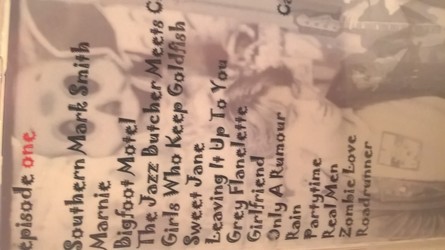 episode one
Southern Mark Smith
Marnie
Bigfoot Motel
The Jazz Butcher Meets C
Girls Who Keep Goldfish
Sweet Jane
Leaving It Up To You
Grey Flanelette
Girlfriend
Only A Rumour
Rain
Partytime
Real Men
Zombie Love
Roadrunner
Ca